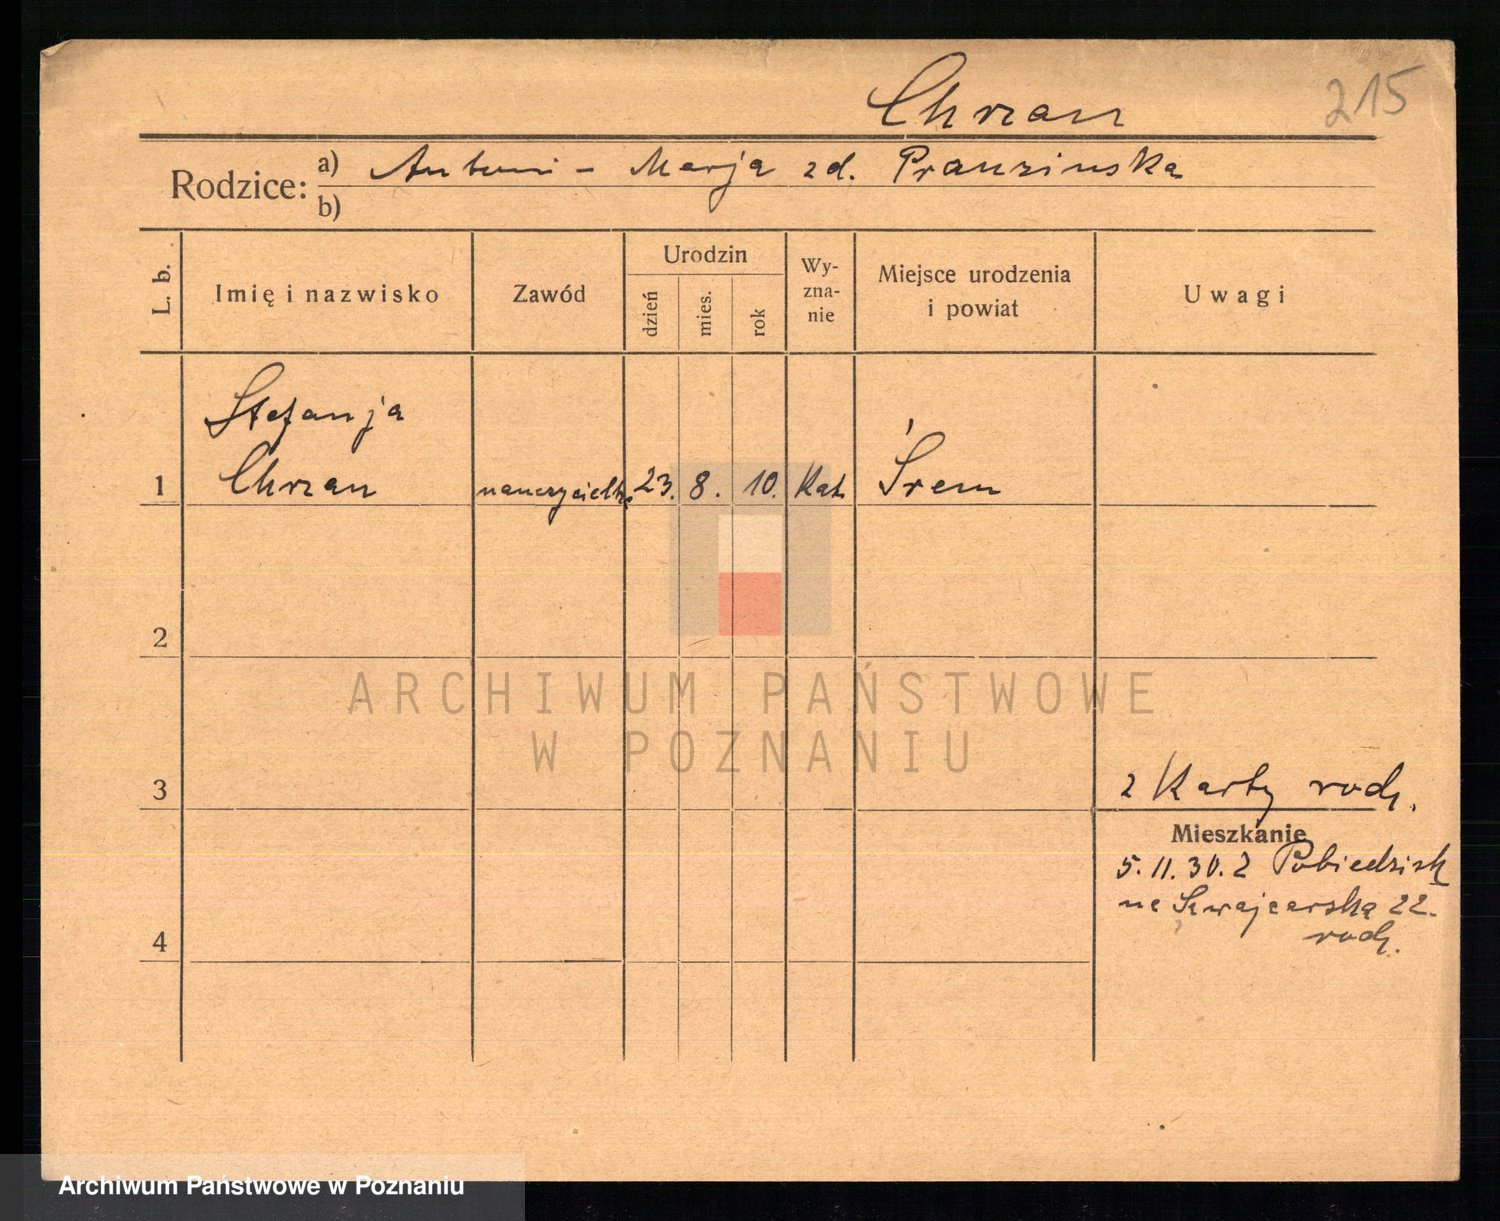 Chrzan 215
Rodzice: a) Antoni - Marja zd. Pranzinska
b)
L. b. Imię i nazwisko Zawód Urodzin dzień mies. rok Wy-zna-nie Miejsce urodzenia i powiat Uwagi
Stefanja
1 Chrzan nauczycielka 23. 8. 10. Kat Śrem
2
ARCHIWUM PAŃSTWOWE
W POZNANIU
3 z Karty rodz.
Mieszkanie
5.11.30. z Pobiedzisk
na Szwajcarską 22.
4 rodz.
Archiwum Państwowe w Poznaniu